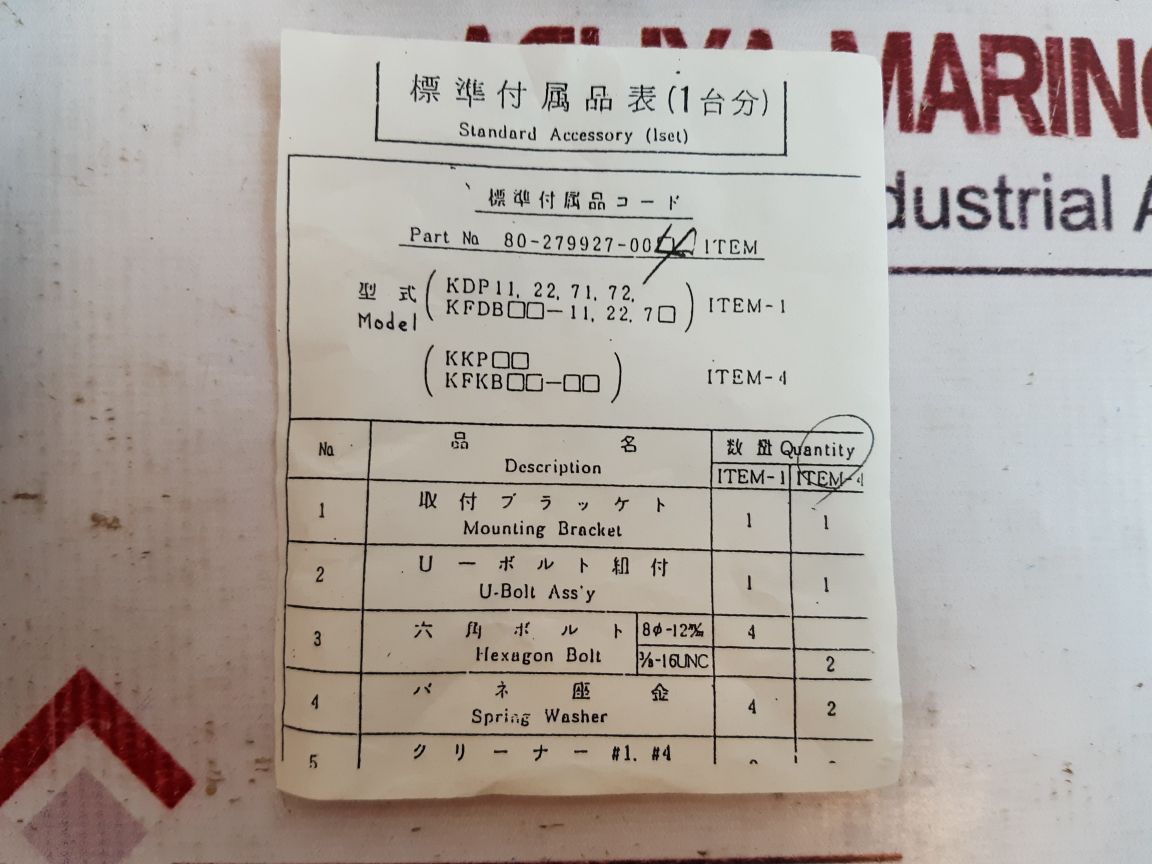 ASUYA MARIN
dustrial A
標準付属品表(1台分)
Standard Accessory (1set)
標準付属品コード
Part No 80-279927-00□□ ITEM
型式 Model
KDP11, 22, 71, 72,
KFDB□□-11, 22, 7□
ITEM-1
KKP□□
KFKB□□-□□
ITEM-4
No 品名 数量 Quantity
Description ITEM-1 ITEM-4
1 取付ブラケット 1 1
Mounting Bracket
2 Uーボルト組付 1 1
U-Bolt Ass'y
3 六角ボルト 8φ-12㎜ 4
Hexagon Bolt ⅜-16UNC 2
4 バネ座金 4 2
Spring Washer
5 クリーナー #1. #4